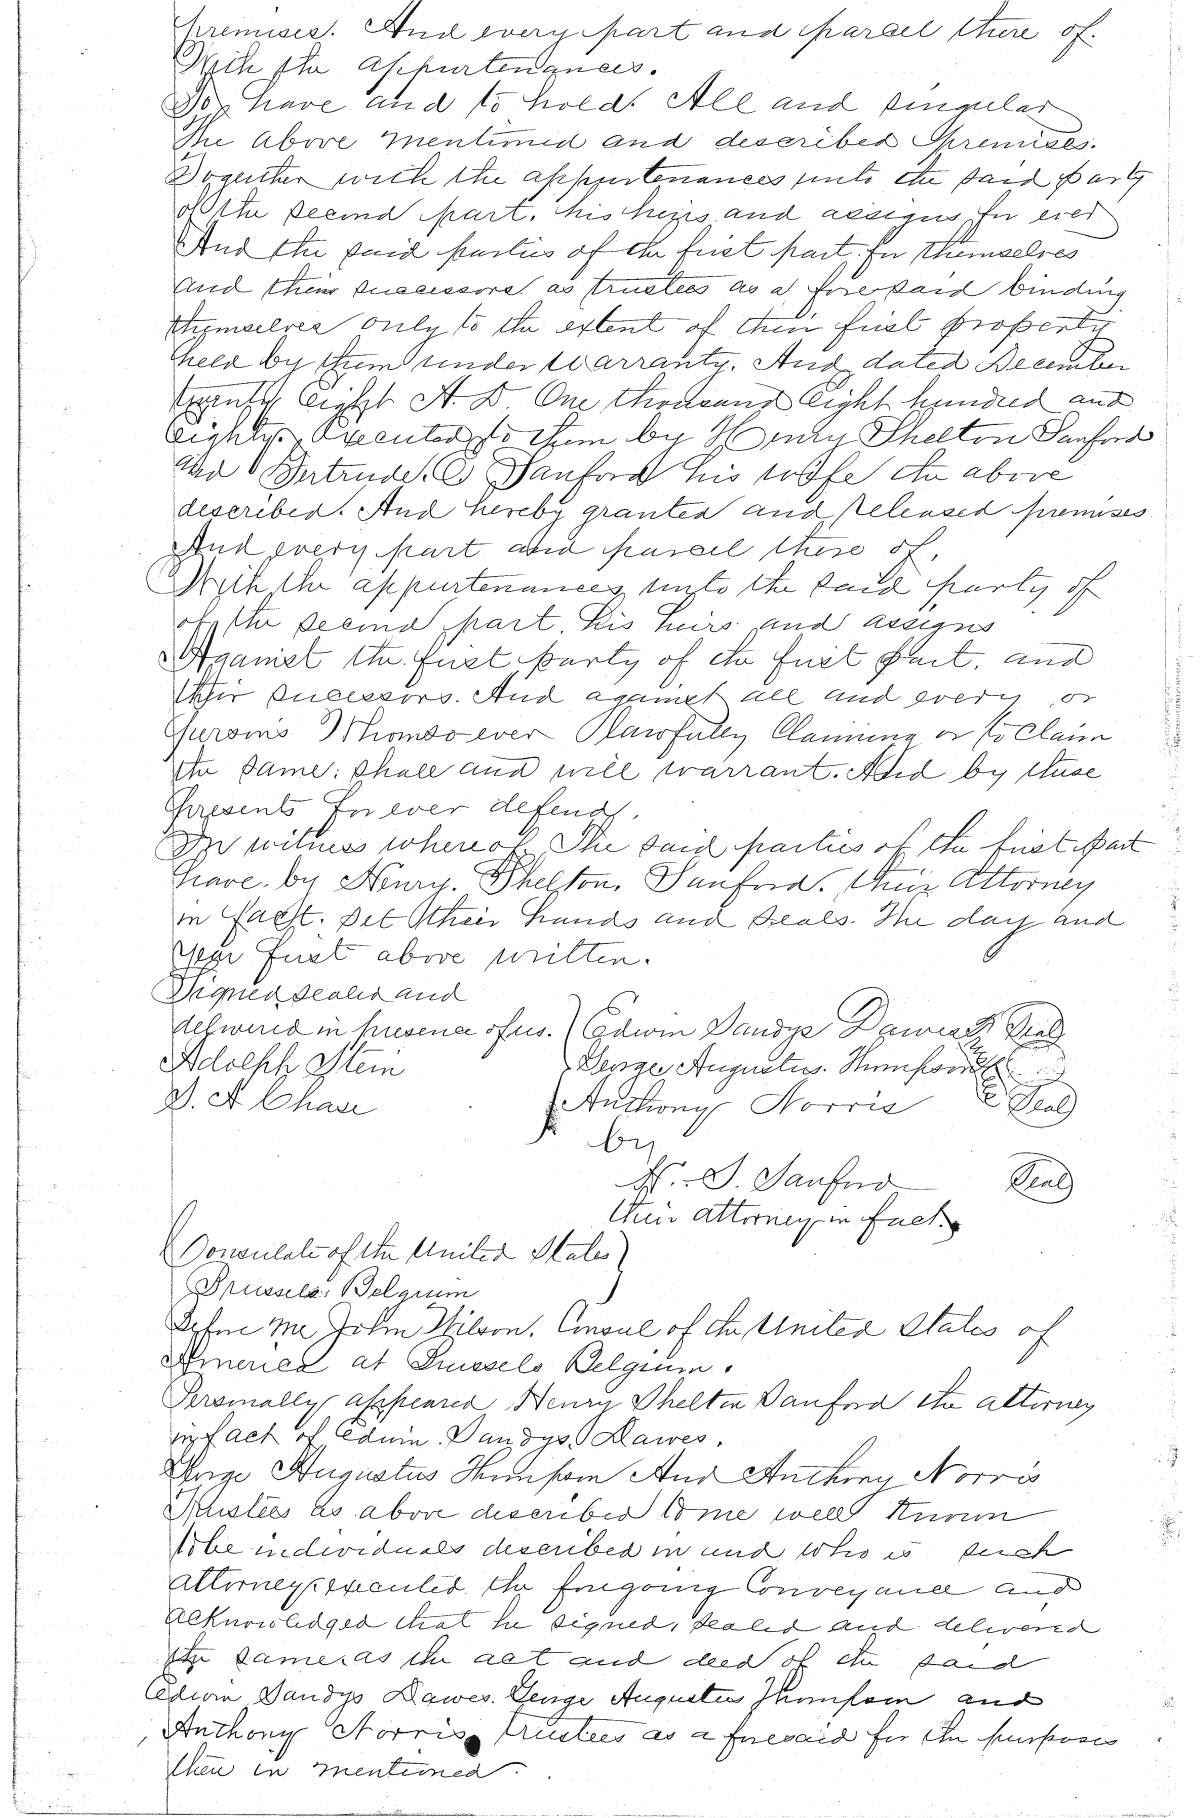 premises. And every part and parcel there of.
With the appurtenances.
To have and to hold. All and singular
The above mentioned and described premises.
Together with the appurtenances unto the said party
of the second part. his heirs and assigns for ever
And the said parties of the first part for themselves
and their successors as trustees as a foresaid binding
themselves only to the extent of their first property
held by them under Warranty. And dated December
twenty eight A. D. One thousand eight hundred and
eighty. Executed to them by Henry Shelton Sanford
and Gertrude. E Sanford his wife the above
described. And hereby granted and released premises
And every part and parcel there of.
With the appurtenances unto the said party of
of the second part. his heirs and assigns
Against the first party of the first part. and
their successors. And against all and every or
persons Whomsoever lawfully Claiming or to claim
the same: shall and will warrant. And by these
presents For ever defend.
In witness whereof The said parties of the first part
have. by Henry. Shelton. Sanford. their Attorney
in fact. Set their hands and seals. The day and
year first above written.
Signed, sealed and
delivered in presence of us. Edwin Sandys Dawes Seal
Adolph Stein George Augustus. Thompson
D. A Chase Anthony Norris Seal
by
H. S. Sanford Seal
their attorney in fact.
Consulate of the United States
Brussels. Belgium
Before me John Wilson. Consul of the United States of
America at Brussels Belgium.
Personally appeared Henry Shelton Sanford the attorney
in fact of Edwin. Sandys. Dawes.
George Augustus Thompson And Anthony Norris
Trustees as above described to me well Known
to be individuals described in and who is such
attorney executed the foregoing Conveyance and
acknowledged that he signed, sealed and delivered
the same. as the act and deed of the said
Edwin Sandys Dawes. George Augustus Thompson and
Anthony Norris trustees as a foresaid for the purposes
then in mentioned.